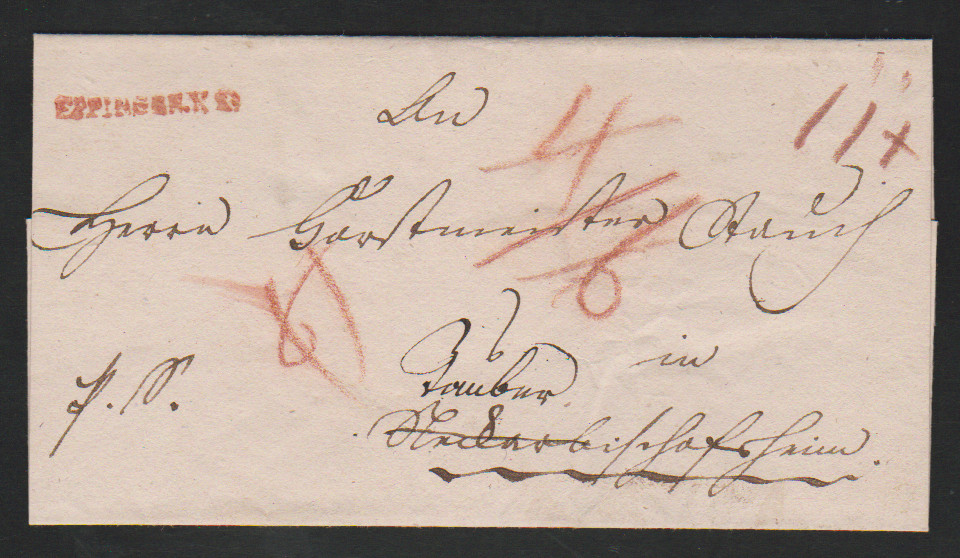 EPPINGEN
An
Herrn Forstmeister Stauch
in
P. S.
Tauber
Neckarbischofsheim.
11 x
4
6